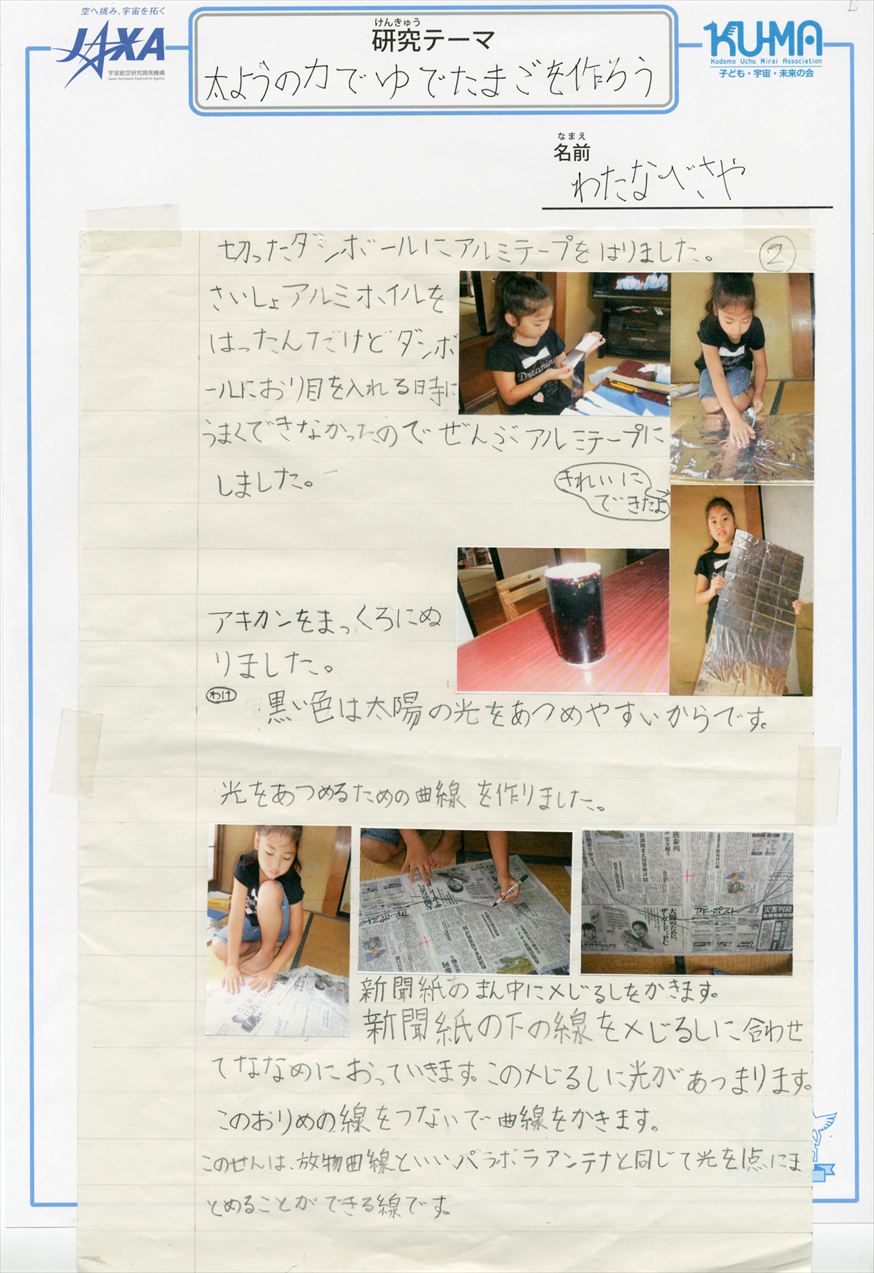 空へ挑み、宇宙を拓く
JAXA
宇宙航空研究開発機構
Japan Aerospace Exploration Agency
けんきゅう
研究テーマ
太ようの力でゆでたまごを作ろう
KU-MA
Kodomo Uchu Mirai Association
子ども・宇宙・未来の会
なまえ
名前
わたなべさや
②
切ったダンボールにアルミテープをはりました。
さいしょアルミホイルを
はったんだけどダンボ
ールにおり目を入れる時に
うまくできなかったのでぜんぶアルミテープに
しました。
きれいに
できたよ
アキカンをまっくろにぬ
りました。
わけ
黒い色は太陽の光をあつめやすいからです。
光をあつめるための曲線を作りました。
新聞紙のまん中にメじるしをかきます。
新聞紙の下の線をメじるしに合わせ
てななめにおっていきます。このメじるしに光があつまります。
このおりめの線をつないで曲線をかきます。
このせんは、放物曲線といいパラボラアンテナと同じで光を1点にま
とめることができる線です。